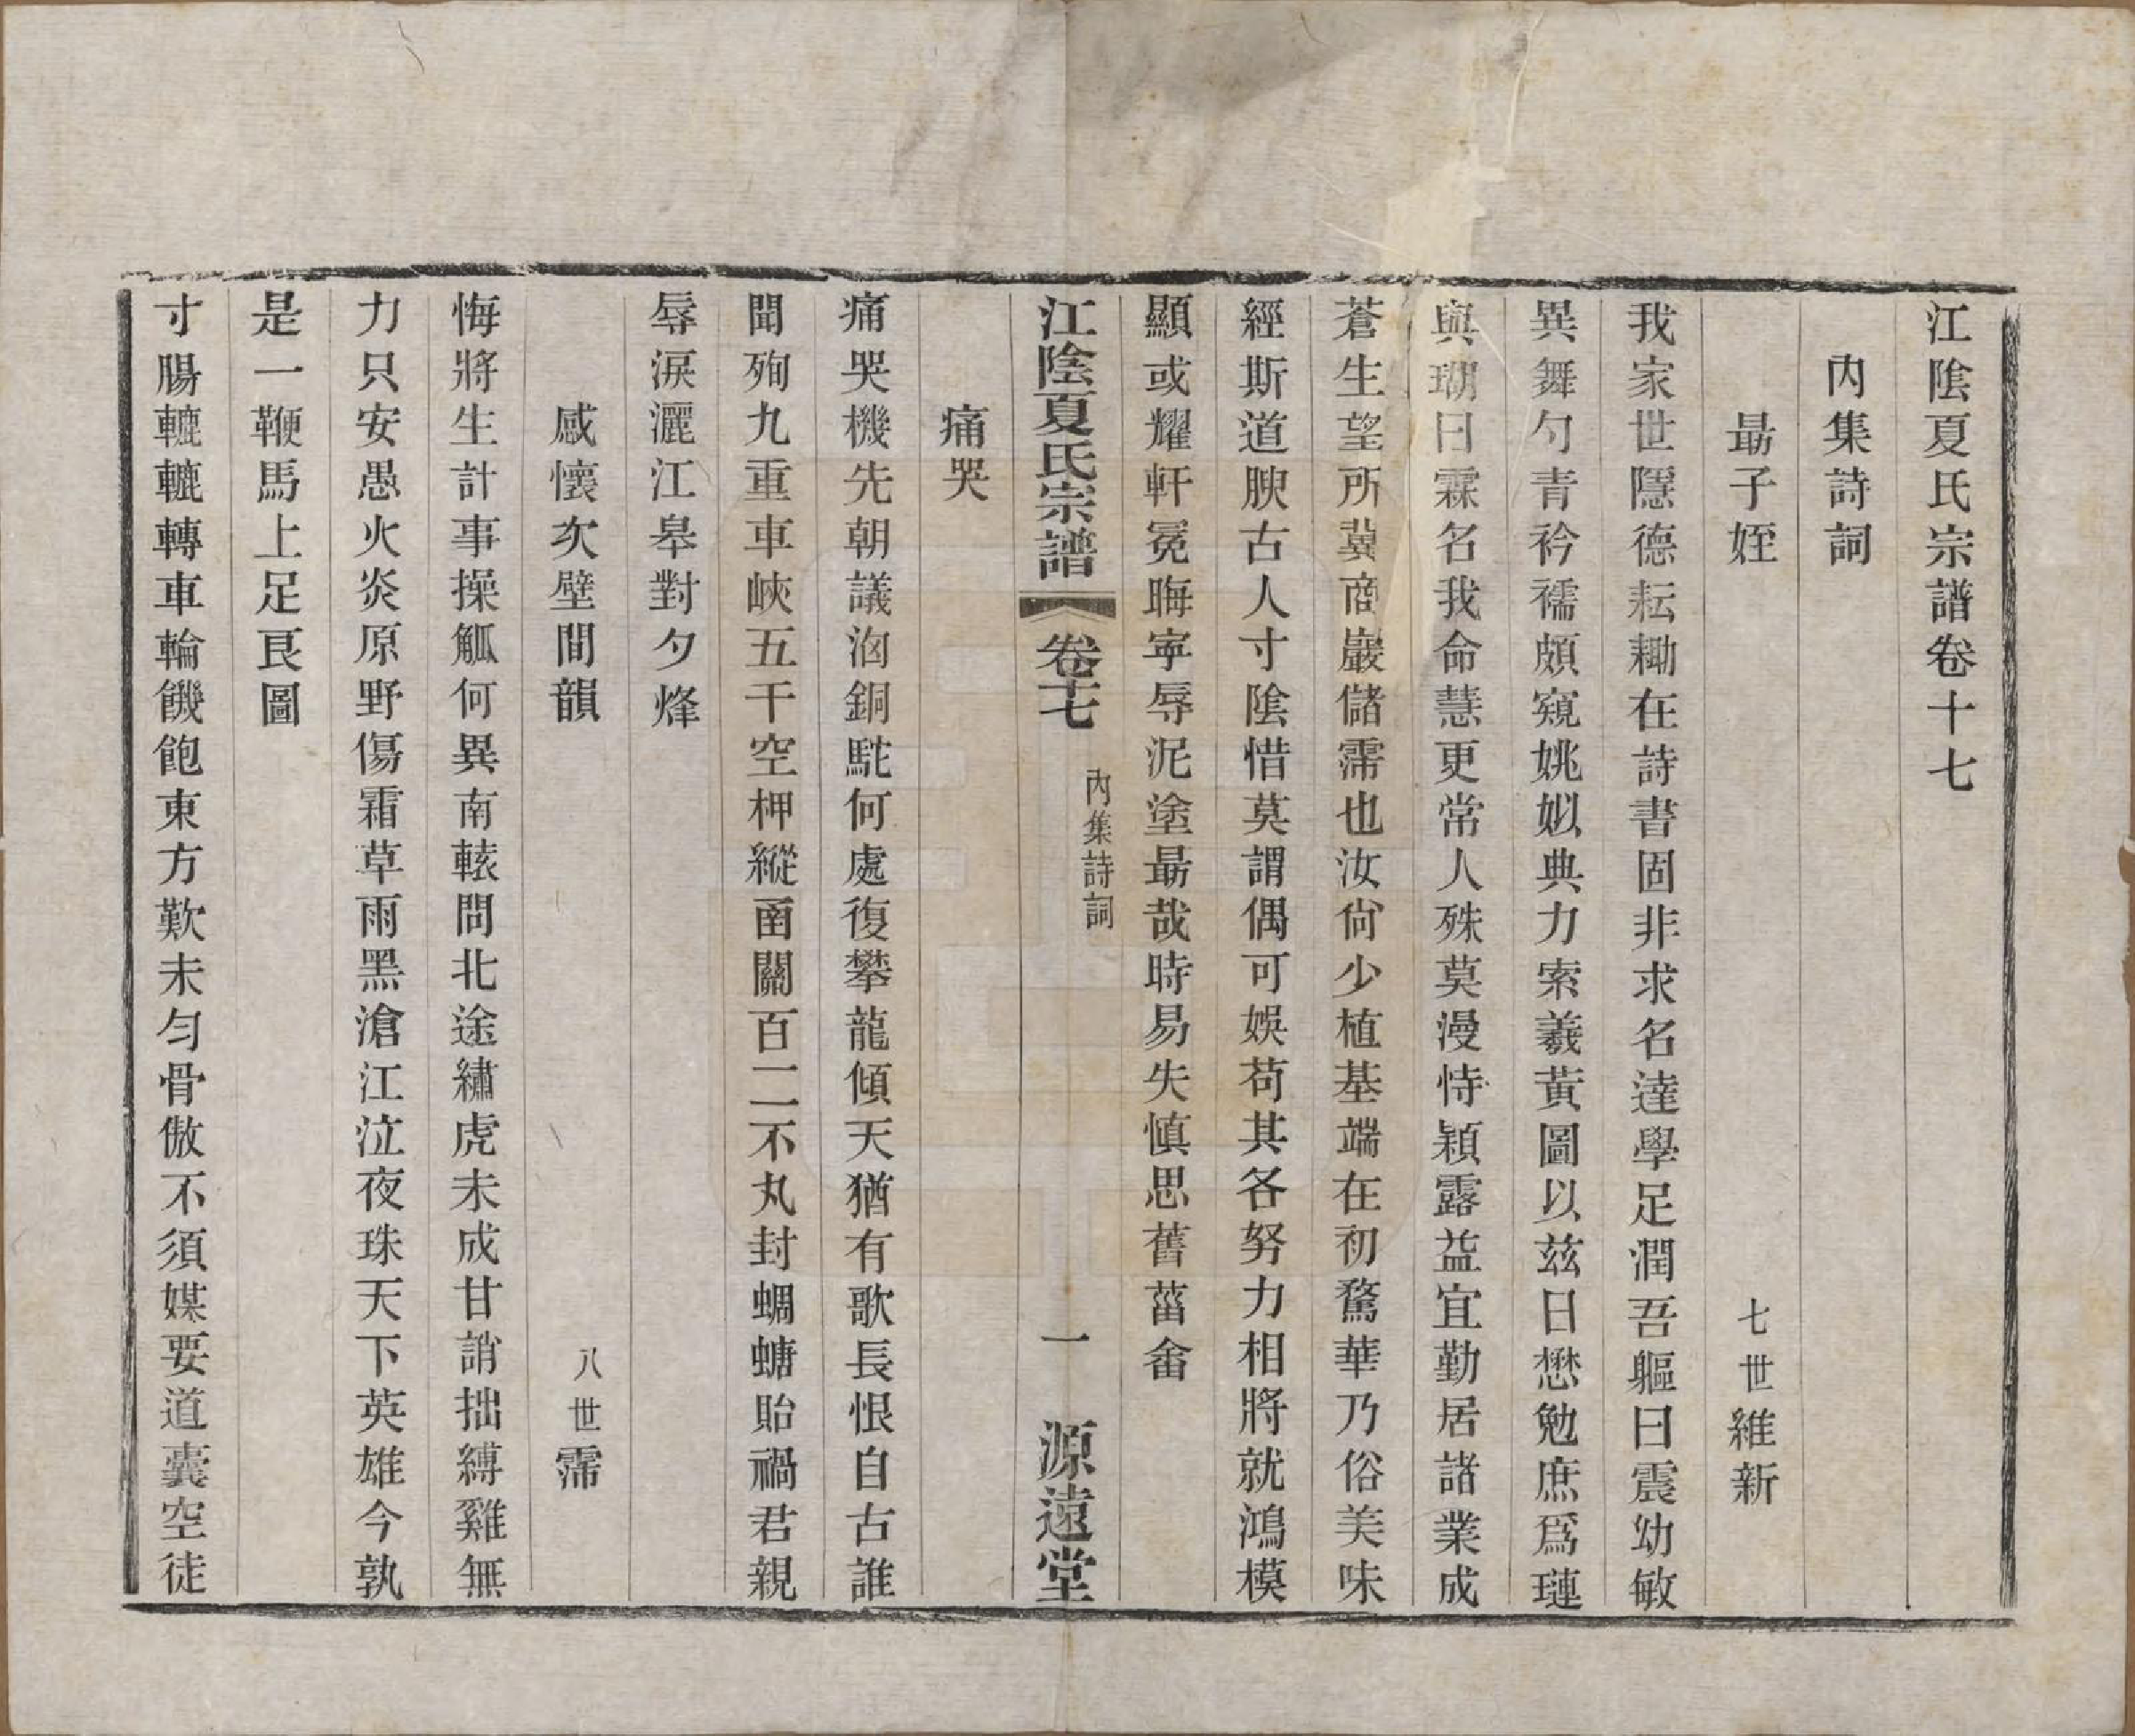 江陰夏氏宗譜卷十七
內集詩詞
勗子姪
七世維新
我家世隱德耘耡在詩書固非求名達學足潤吾軀曰震幼敏
異舞勺青衿襦頗窺姚姒典力索羲黃圖以茲日懋勉庶爲璉
與瑚曰霖名我命慧更常人殊莫漫恃穎露益宜勤居諸業成
蒼生望所冀商巖儲霈也汝尙少植基端在初騖華乃俗美味
經斯道腴古人寸陰惜莫謂偶可娛苟其各努力相將就鴻模
顯或耀軒冕晦寧辱泥塗勗哉時易失慎思舊菑畬
江陰夏氏宗譜
卷十七
內集詩詞
一
源遠堂
痛哭
痛哭機先朝議洶銅駝何處復攀龍傾天猶有歌長恨自古誰
聞殉九重車峽五千空柙縱函關百二不丸封蜩螗貽禍君親
辱淚灑江皋對夕烽
感懷次壁間韻
八世霈
悔將生計事操觚何異南轅問北途繡虎未成甘誚拙縛雞無
力只安愚火炎原野傷霜草雨黑滄江泣夜珠天下英雄今孰
是一鞭馬上足艮圖
寸腸轆轆轉車輪饑飽東方歎未勻骨傲不須媒要道囊空徒